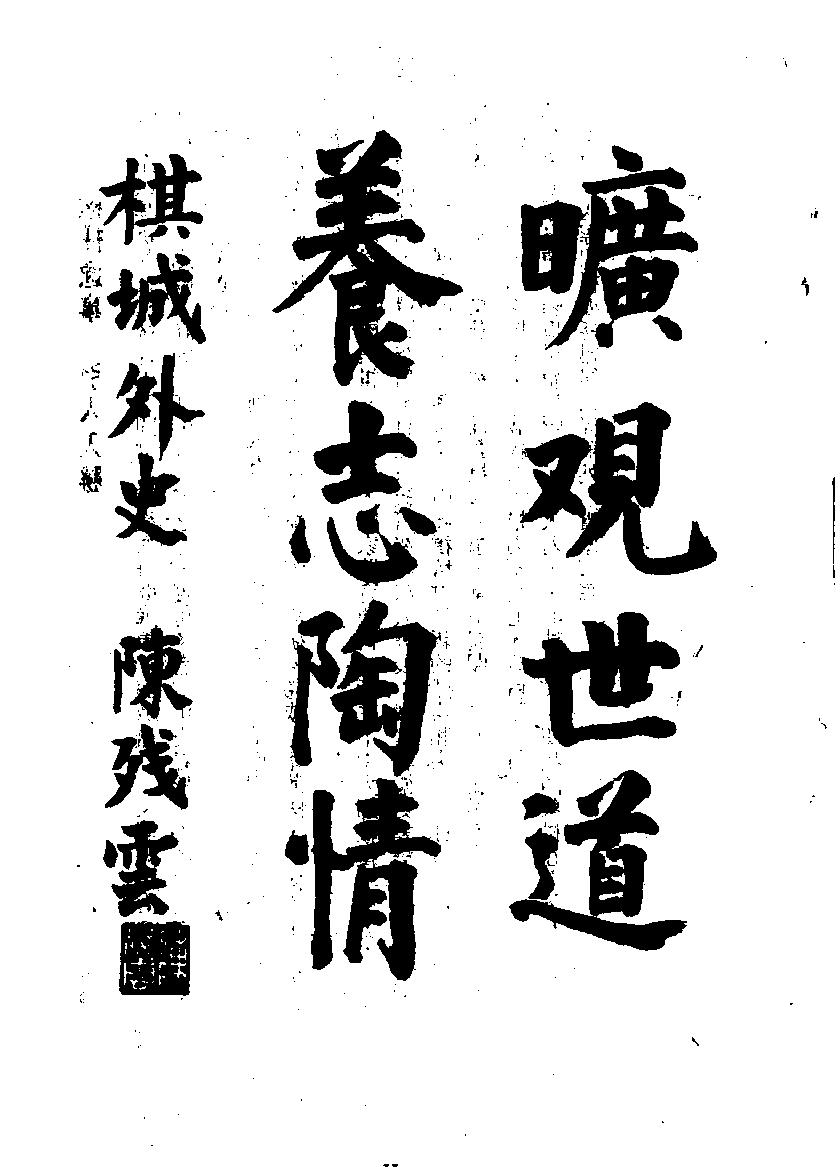 曠观世道
養志陶情
棋城外史 陳残雲